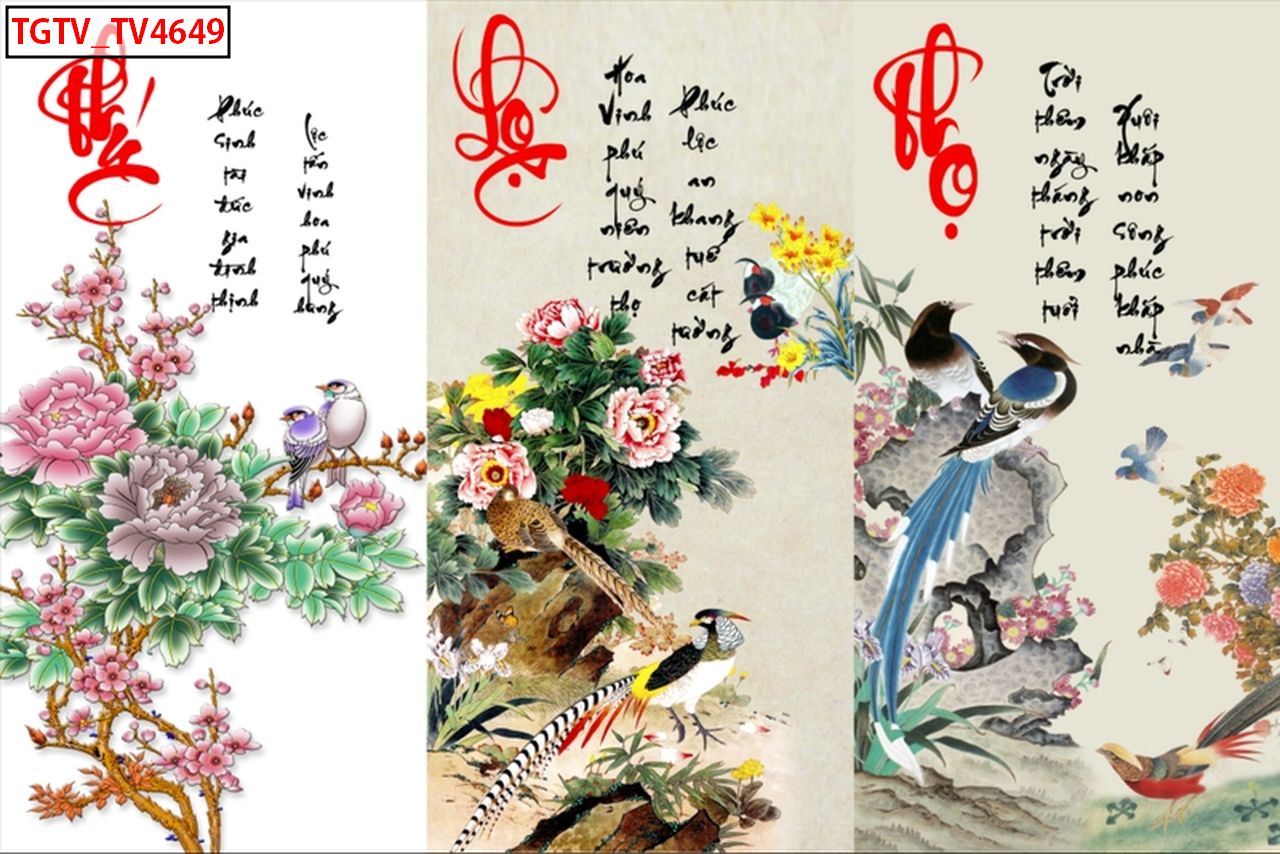 TGTV_TV4649
Phúc
Phúc sinh tài đức gia đình thịnh
Lộc tấn vinh hoa phú quý hưng
Lộc
Hoa Vinh phú quý niên trường thọ
Phúc lộc an khang tuế cát tường
Thọ
Trời thêm ngày tháng trời thêm tuổi
khắp non sông phúc khắp nhà